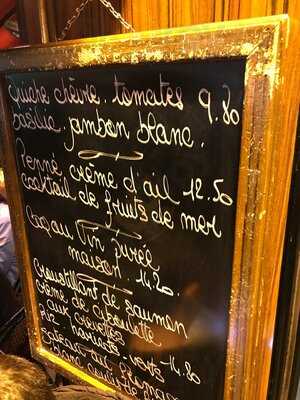 Quiche chèvre. tomates 9.80
basilic. jambon blanc.
Penne crème d'ail 12.50
cocktail de fruits de mer
Coq au Vin purée
maison. 14.20.
Croustillant de saumon
crème de ciboulette
aux crevettes
riz. haricots verts 14.80